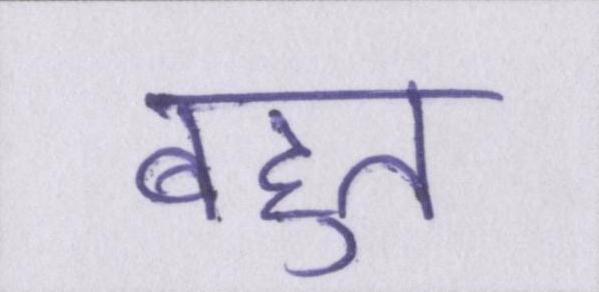 बहुत